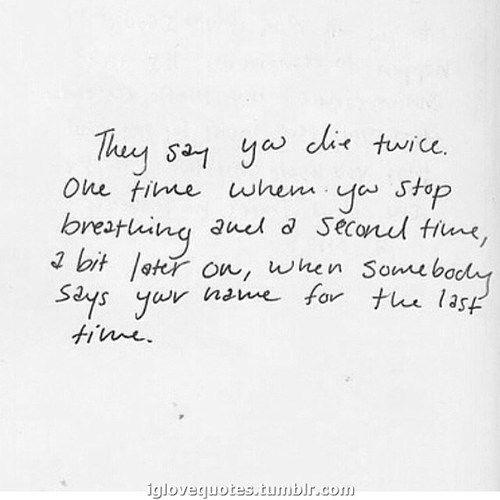 They say you die twice.
One time when you stop
breathing and a second time,
a bit later on, when somebody
says your name for the last
time.
iglovequotes.tumblr.com